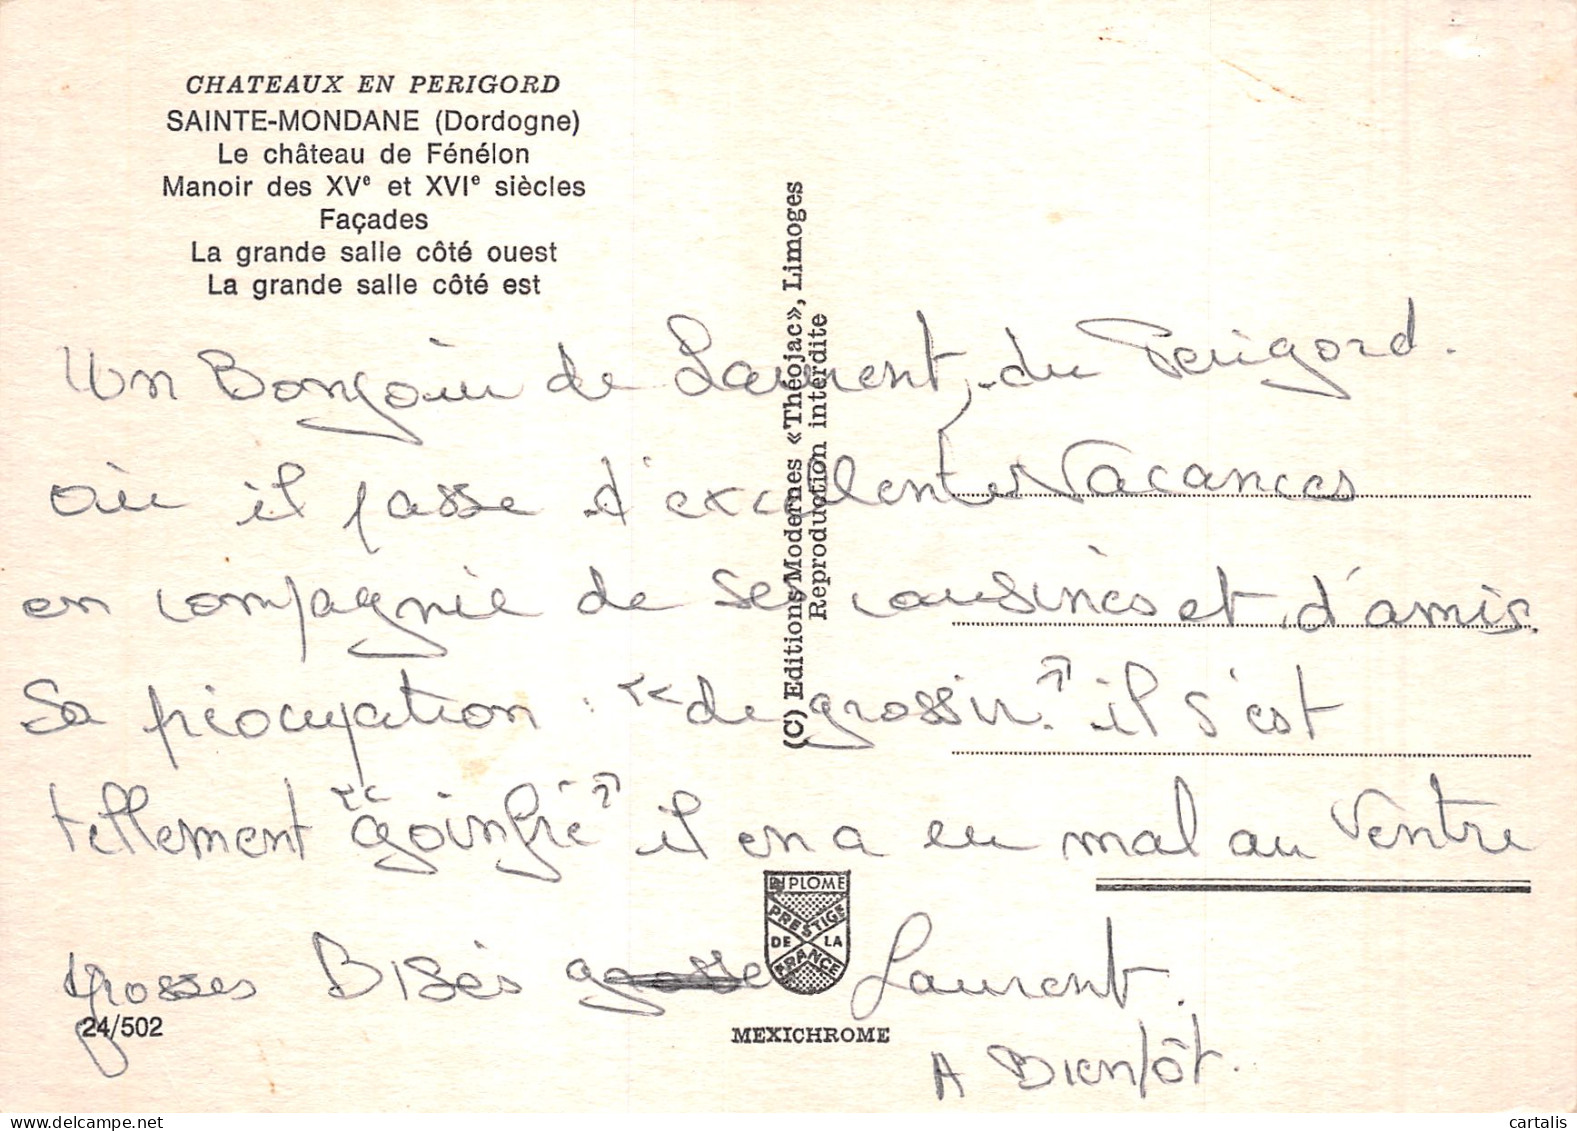 CHATEAUX EN PERIGORD
SAINTE-MONDANE (Dordogne)
Le château de Fénélon
Manoir des XVe et XVIe siècles
Façades
La grande salle côté ouest
La grande salle côté est
(C) Editions Modernes «Théojac», Limoges
Reproduction interdite
Un Bonjour de Laurent, du Périgord.
où il passe d'excellentes Vacances
en compagnie de ses cousines et d'amis.
Sa préocupation : "de grossir." il s'est
tellement "goinfré" il en a eu mal au Ventre
grosses Bises grosse Laurent.
A Bientôt.
24/502
DIPLOME
PRESTIGE
DE LA
FRANCE
MEXICHROME
cartalis